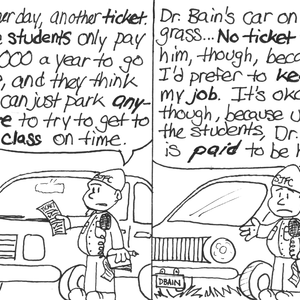 her day, another ticket.
e students only pay
000 a year to go
e, and they think
can just park any-
re to try to get to
class on time.
Dr. Bain's car on
grass... No ticket
him, though, beca
I'd prefer to ke
my job. It's oka
though, because u
the students, Dr.
is paid to be h
DBAIN